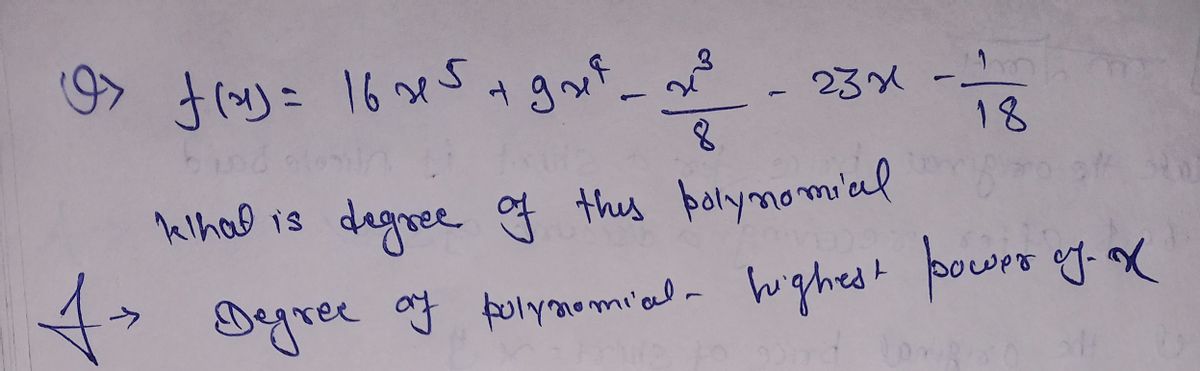 Q> f(x) = 16x⁵ + 9x⁴ - x³/8 - 23x - 1/18
What is degree of thus polynomial
A → Degree of polynomial - highest power of x